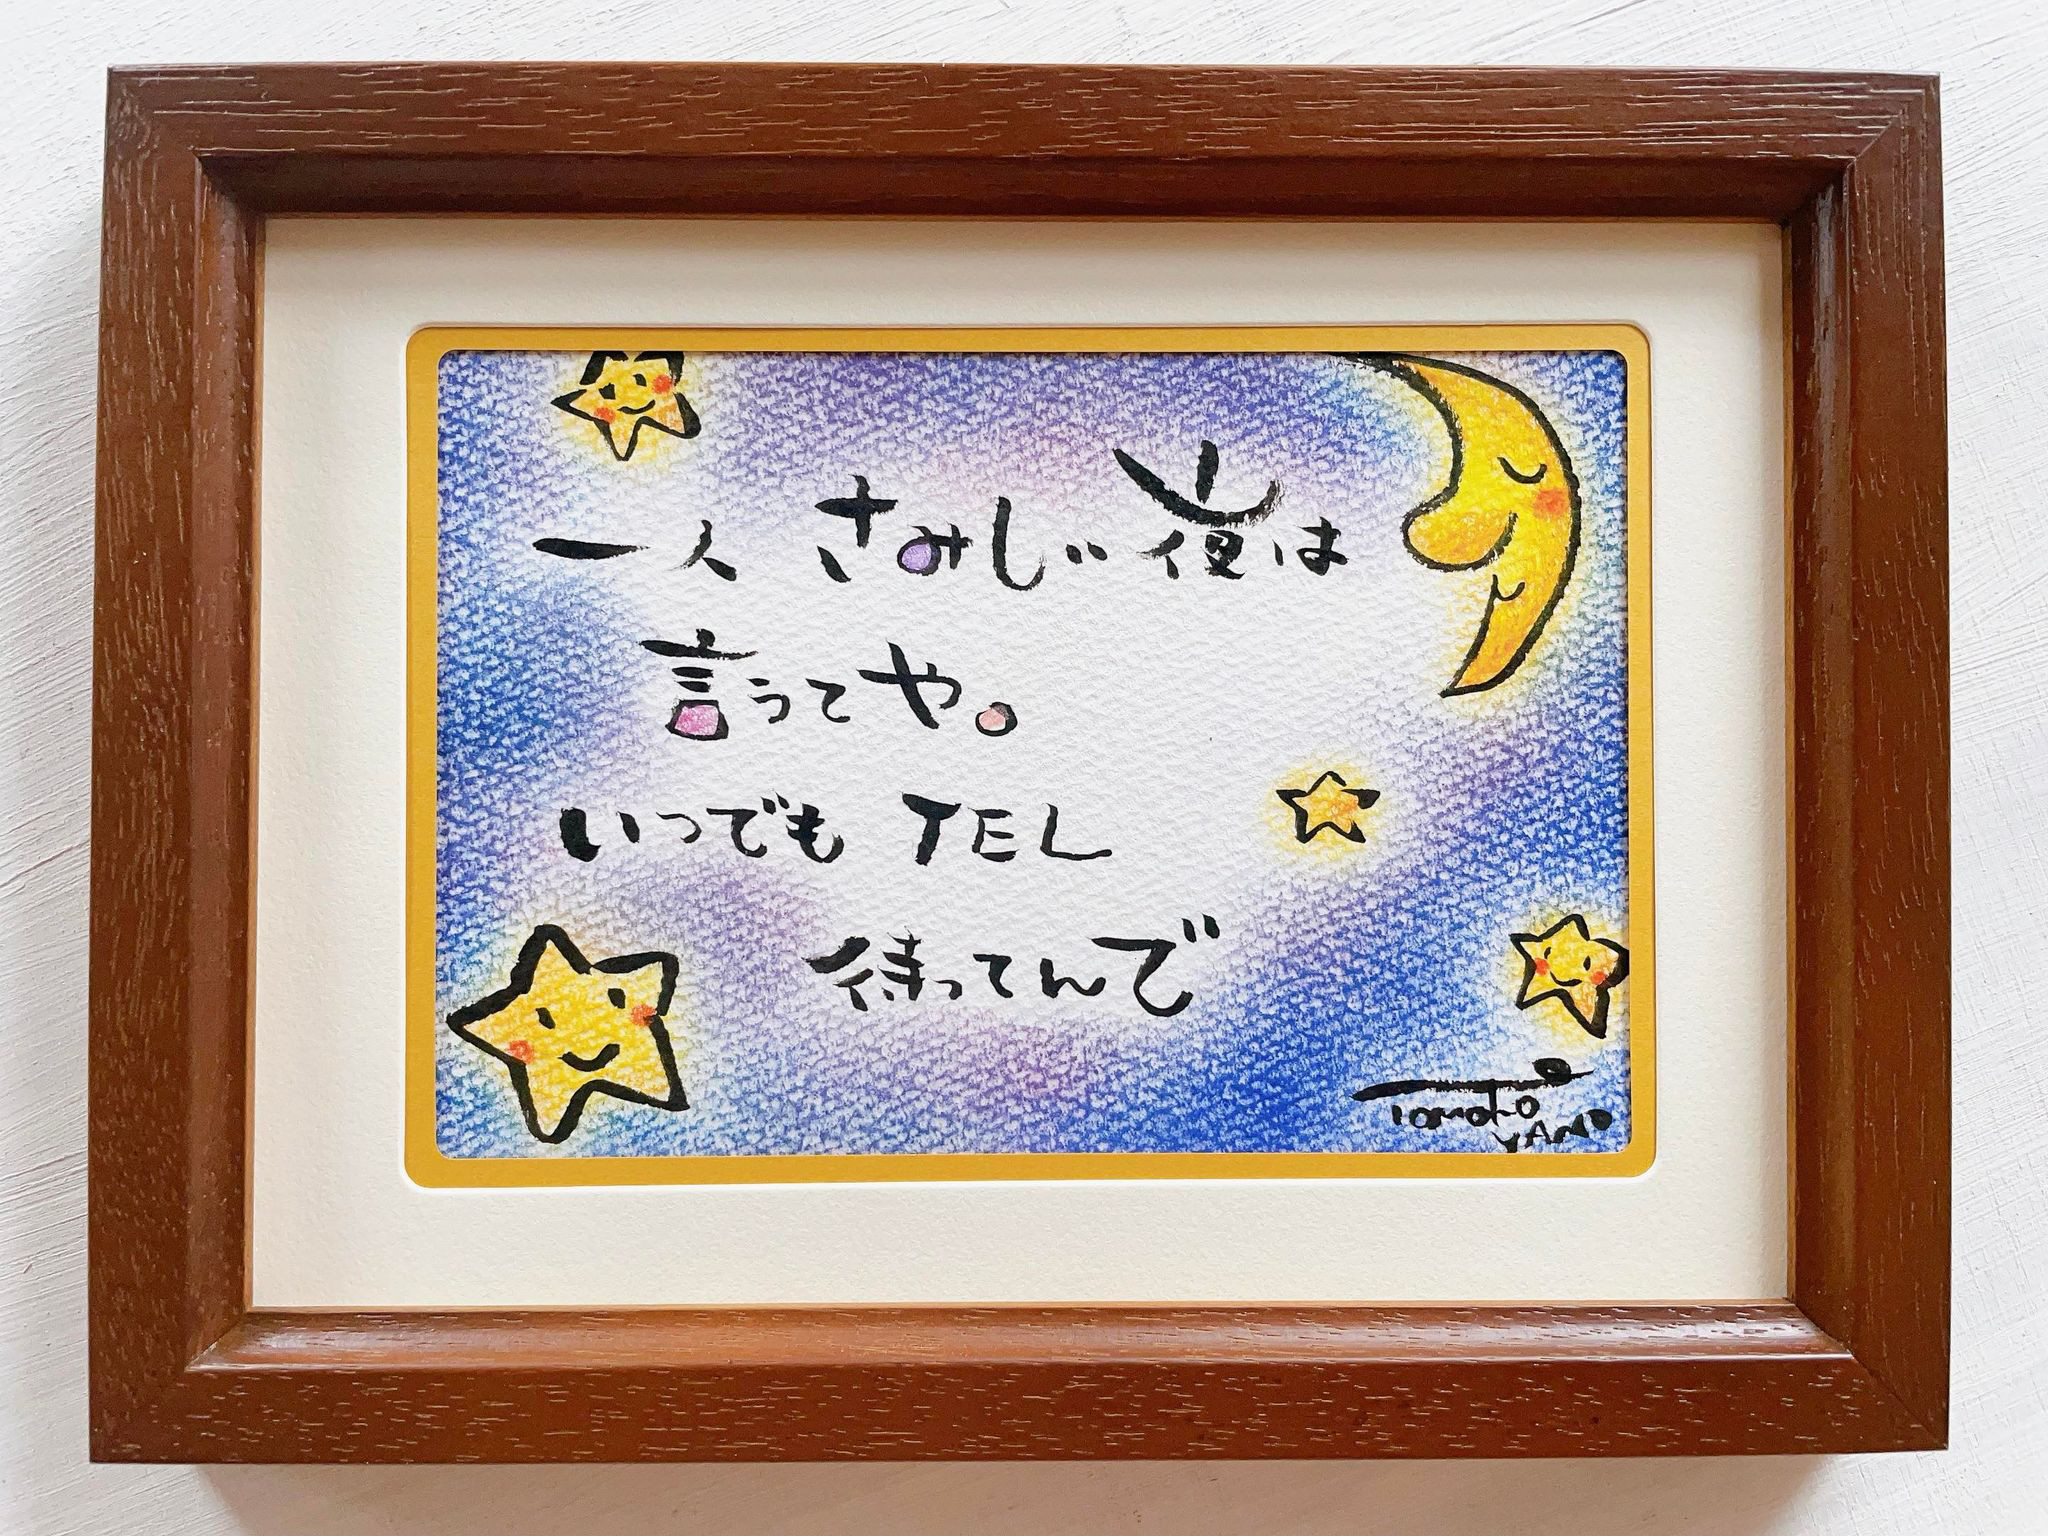 一人 さみしい夜は
言うてや。
いつでも TEL
待ってんで
TOMOKO
YANO